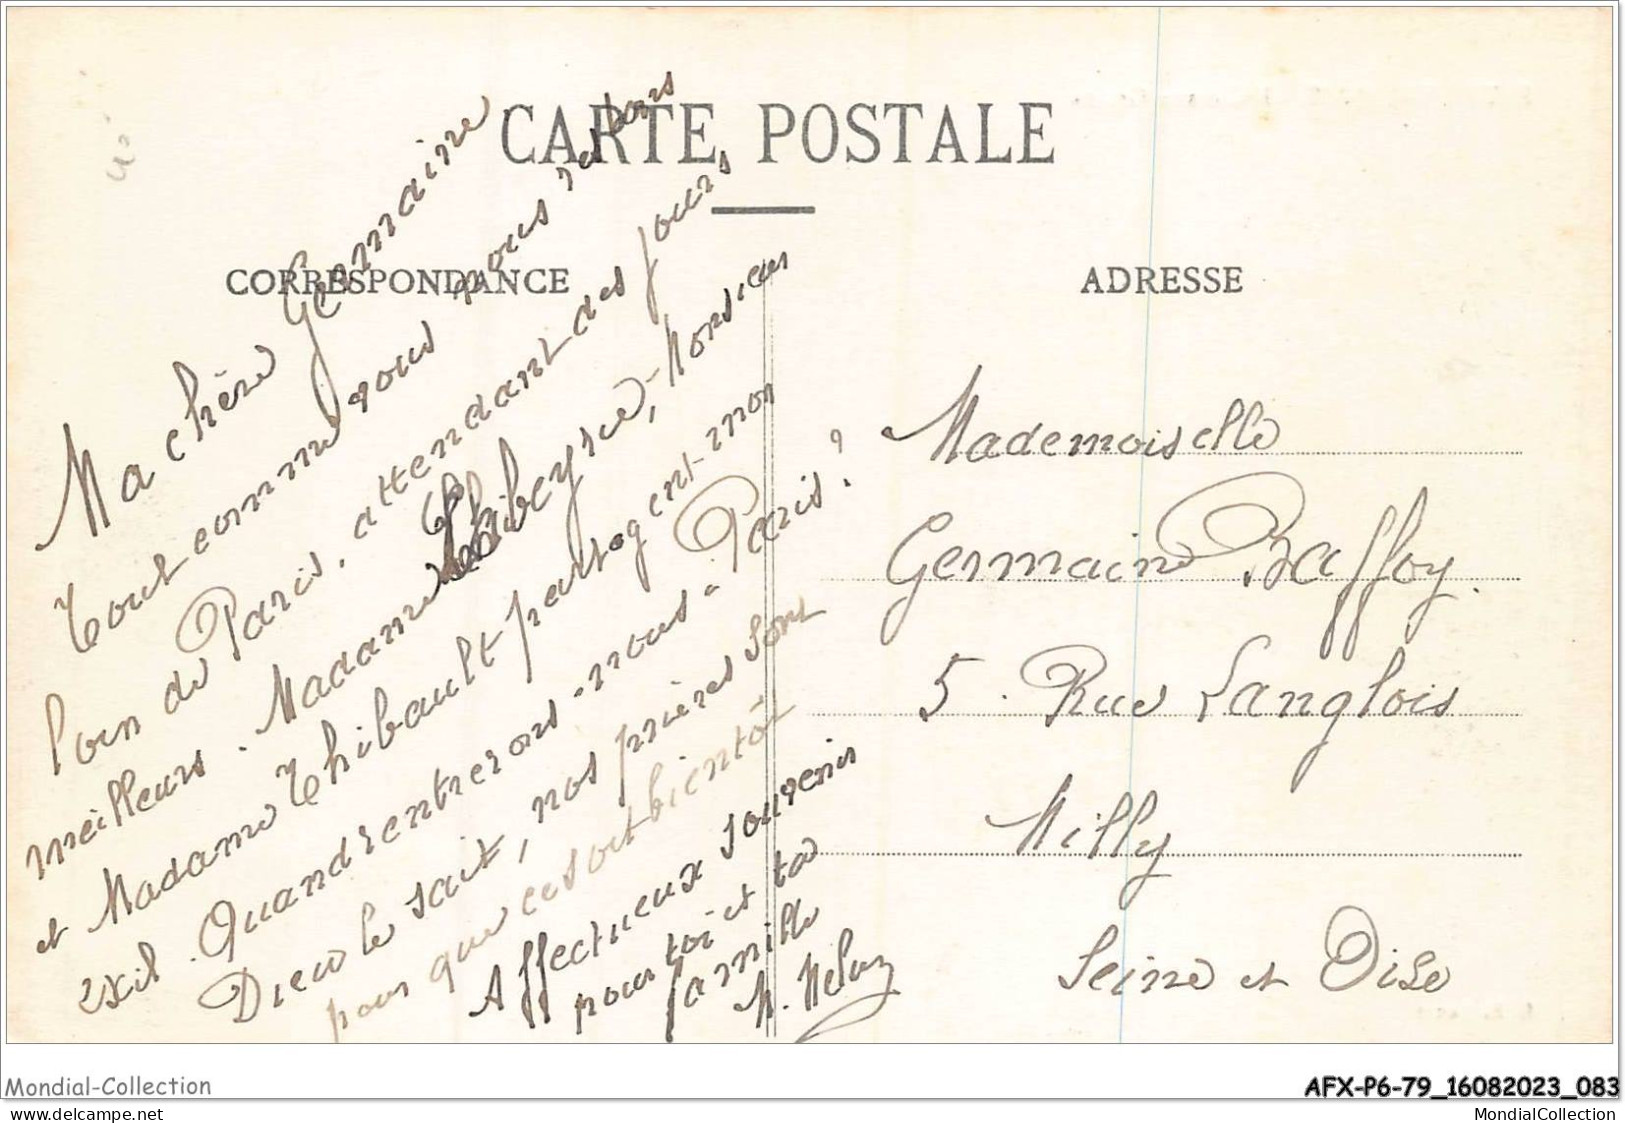 CARTE POSTALE
CORRESPONDANCE
ADRESSE
Ma chère Germaine
Tout comme vous nous
loin de Paris, attendant des jours
meilleurs. Madame Thibeysse, Monsieur
et Madame Thibault partagent mon
exil. Quand rentrerons-nous à Paris?
Dieu le sait, nos prières sont
pour que ce soit bientôt
Affectueux souvenir
pour toi et ta
famille
Mademoiselle
Germaine Baffoy.
5. Rue Langlois
Milly
Seine et Oise
Mondial-Collection
delcampe.net
AFX-P6-79_16082023_083
MondialCollection